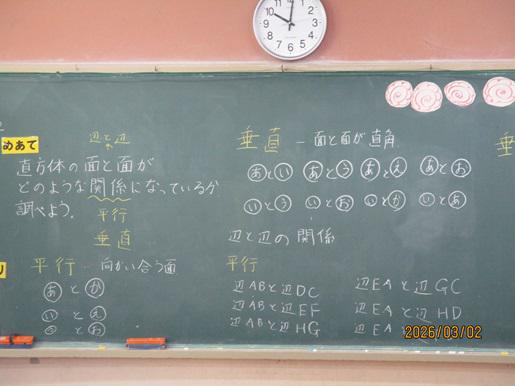 めあて
辺と辺
直方体の面と面が
どのような関係になっているか
調べよう。
平行
垂直
平行 - 向かい合う面
あとか
いとえ
うとお
垂直 - 面と面が直角
あとい あとう あとえ あとお
いとう いとお いとか いとあ
辺と辺の関係
平行
辺ABと辺DC
辺ABと辺EF
辺ABと辺HG
辺EAと辺GC
辺EAと辺HD
辺EA
垂
2026/03/02